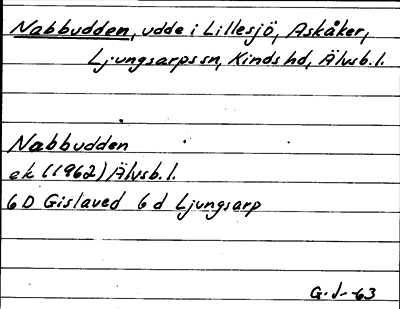 Nabbudden, udde i Lillesjö, Askåker,
Ljungsarps sn, Kinds hd, Älvsb. l.
Nabbudden
ek (1962) Älvsb. l.
6 D Gislaved 6 d Ljungsarp
G. J-63